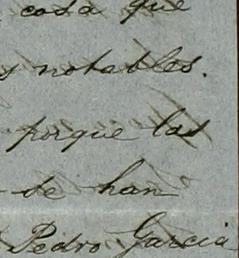 cosa que
y notables.
porque las
de han
Pedro Garcia